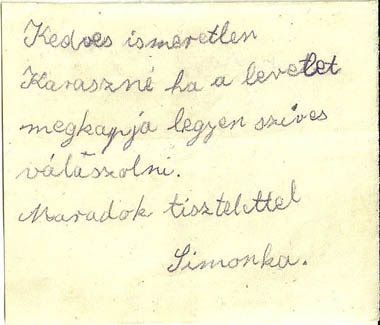 Kedves ismeretlen
Karaszné ha a levelet
megkapja legyen szives
válászolni.
Maradok tisztelettel
Simonka.